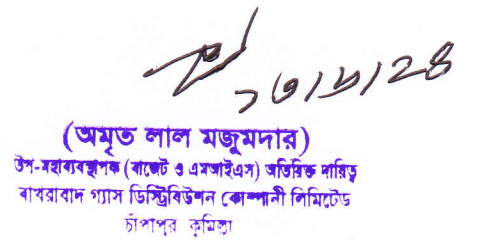 ১৩/৮/২৪
(অমৃত লাল মজুমদার)
উপ-মহাব্যবস্থাপক (বাজেট ও এমআইএস) অতিরিক্ত দায়িত্ব
বাখরাবাদ গ্যাস ডিস্ট্রিবিউশন কোম্পানী লিমিটেড
চাঁপাপুর কুমিল্লা